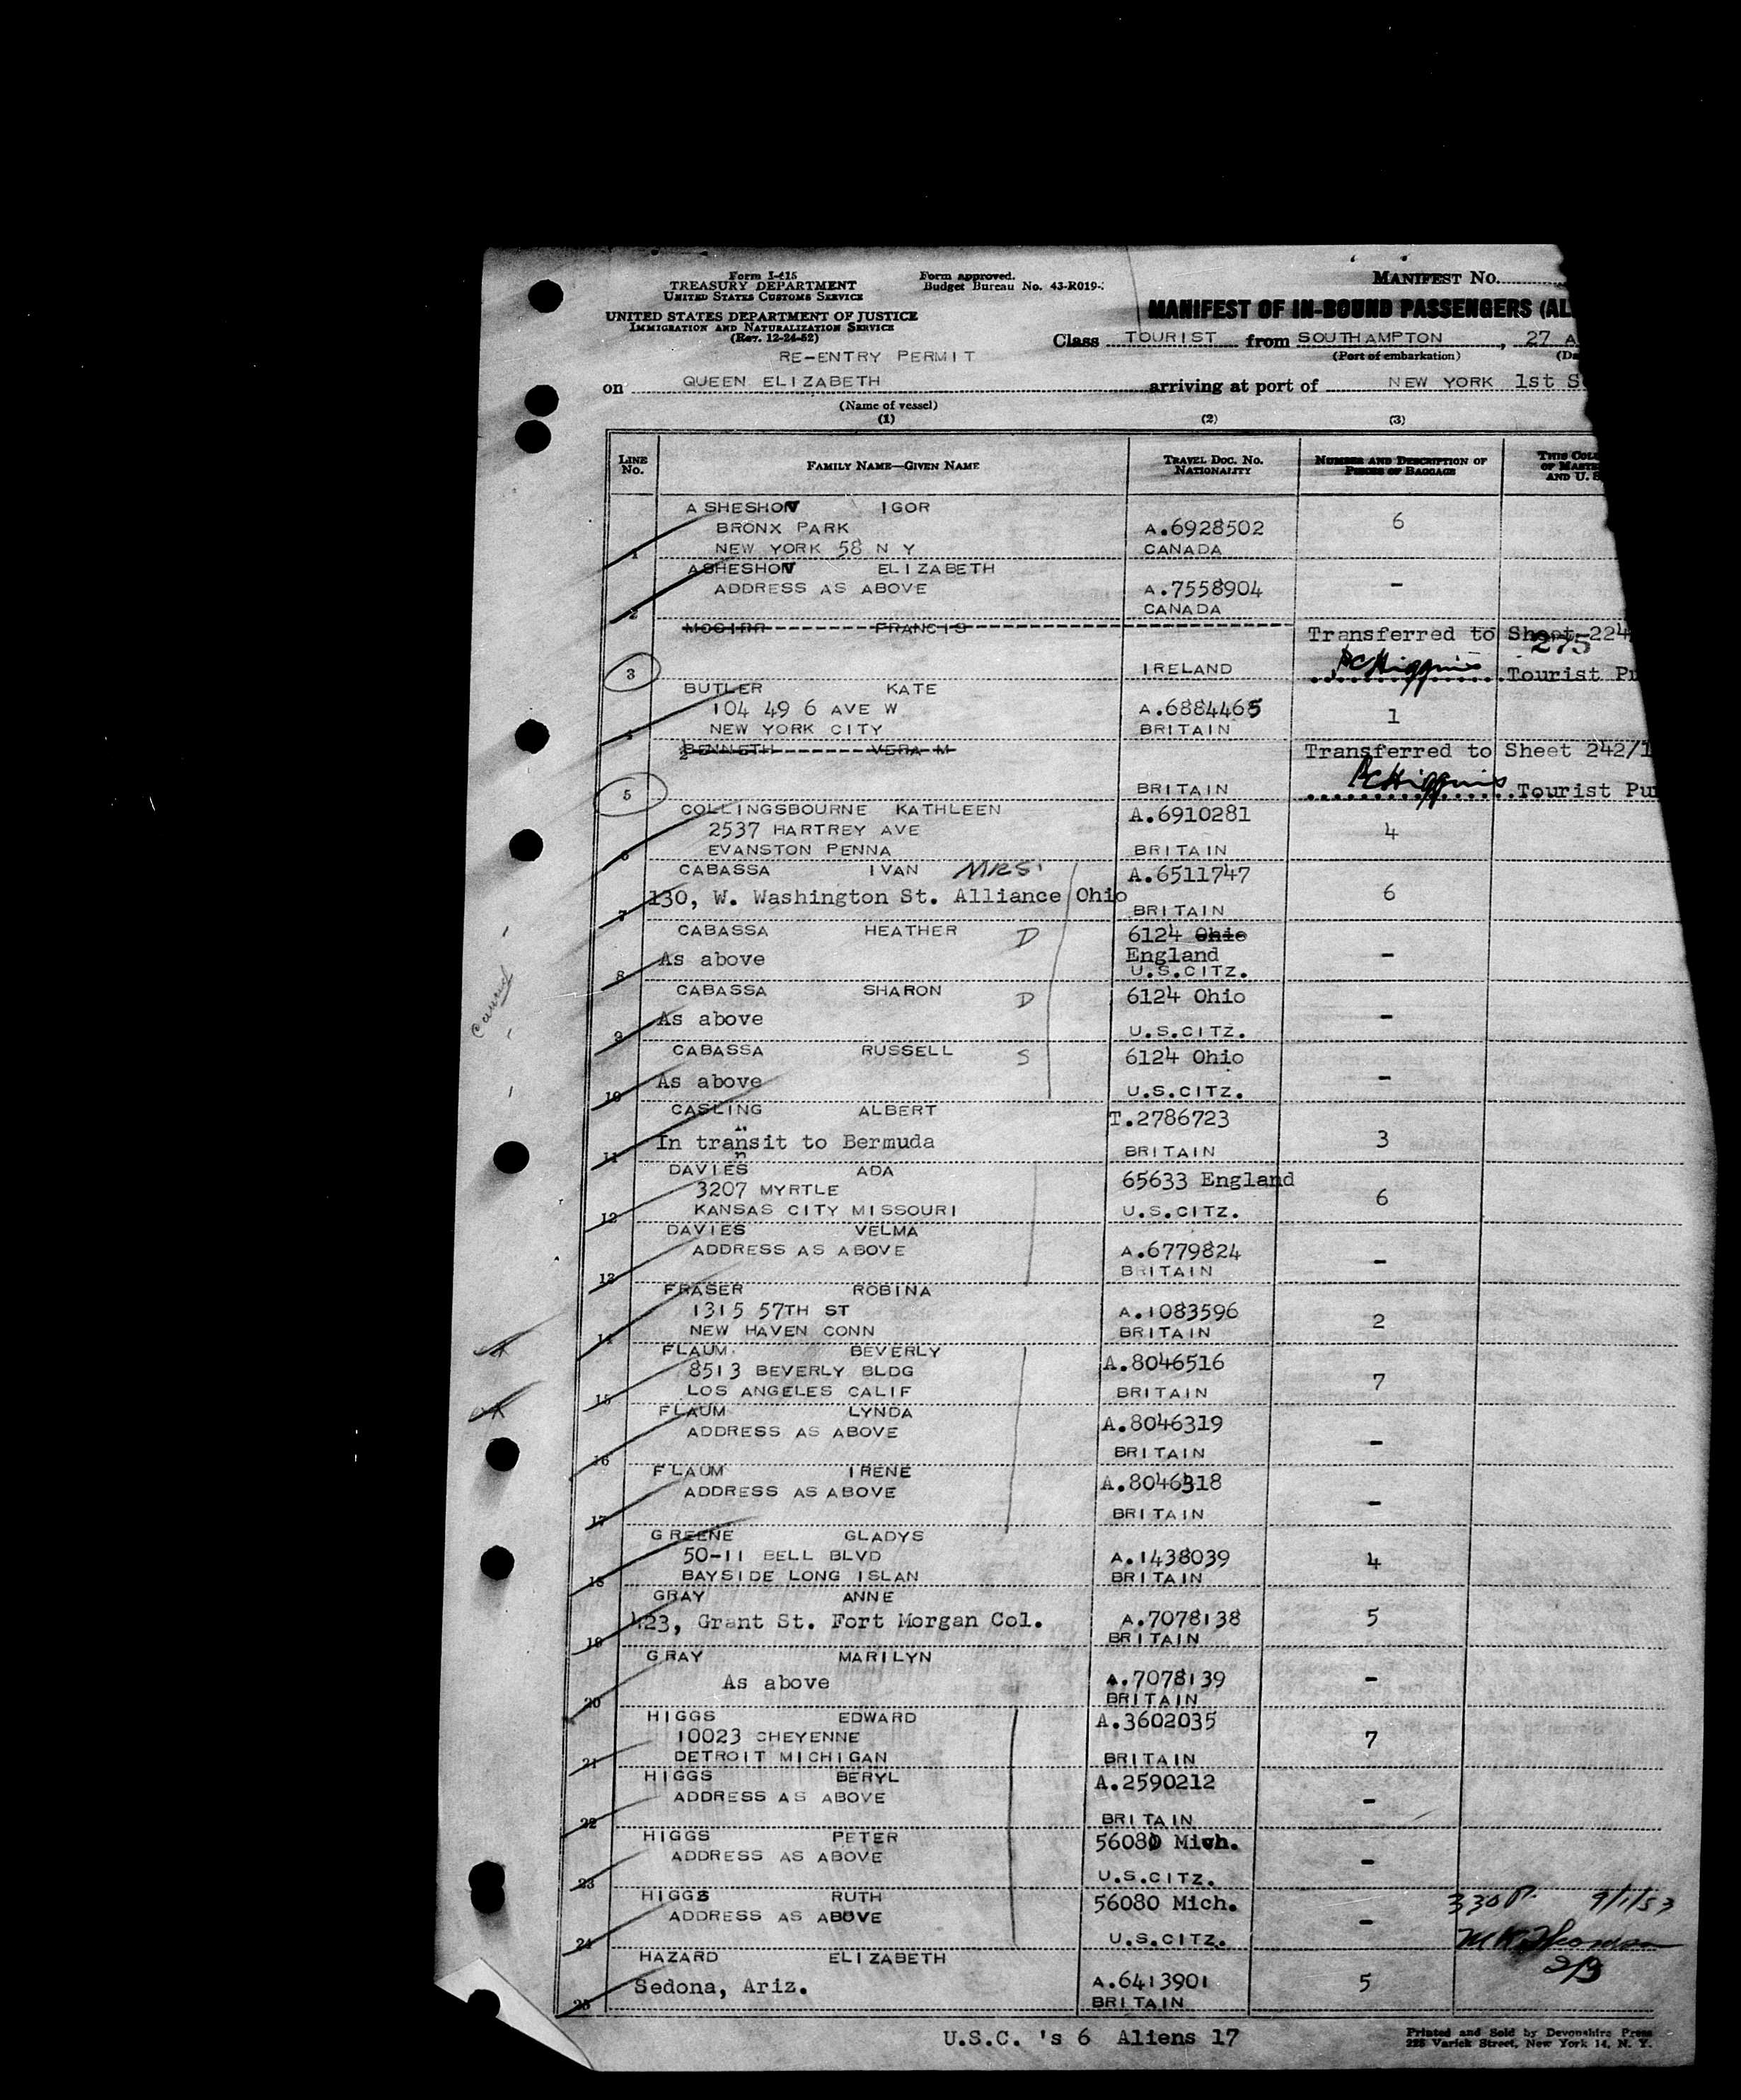 Form I-415
TREASURY DEPARTMENT
UNITED STATES CUSTOMS SERVICE
UNITED STATES DEPARTMENT OF JUSTICE
IMMIGRATION AND NATURALIZATION SERVICE
(Rev. 12-24-52)
Form approved.
Budget Bureau No. 43-R019-
MANIFEST NO.
MANIFEST OF IN-BOUND PASSENGERS (AL
Class TOURIST from SOUTHAMPTON, 27 A
(Port of embarkation) (Da
RE-ENTRY PERMIT
on QUEEN ELIZABETH arriving at port of NEW YORK 1st S
(Name of vessel)
(1) (2) (3)
LINE NO. FAMILY NAME—GIVEN NAME TRAVEL DOC. NO. NATIONALITY NUMBER AND DESCRIPTION OF PIECES OF BAGGAGE THIS COL
OF MAST
AND U. S
ASHESHOV IGOR
BRONX PARK A.6928502 6
1 NEW YORK 58 N Y CANADA
ASHESHOV ELIZABETH
ADDRESS AS ABOVE A.7558904 -
2 CANADA
MCGIRR FRANCIS Transferred to Sheet 224
275
3 IRELAND Tourist Pu
BUTLER KATE
104 49 6 AVE W A.6884465 1
4 NEW YORK CITY BRITAIN
BENNETH VERA M Transferred to Sheet 242/1
5 BRITAIN Tourist Pu
COLLINGSBOURNE KATHLEEN A.6910281
2537 HARTREY AVE 4
6 EVANSTON PENNA BRITAIN
CABASSA IVAN MRS. A.6511747
130, W. Washington St. Alliance Ohio 6
7 BRITAIN
CABASSA HEATHER D 6124 Ohio
As above England -
8 U.S.CITZ.
CABASSA SHARON D 6124 Ohio
As above -
9 U.S.CITZ.
CABASSA RUSSELL S 6124 Ohio
As above -
10 U.S.CITZ.
CASLING ALBERT T.2786723
In transit to Bermuda 3
11 BRITAIN
DAVIES ADA 65633 England
3207 MYRTLE 6
12 KANSAS CITY MISSOURI U.S.CITZ.
DAVIES VELMA
ADDRESS AS ABOVE A.6779824 -
13 BRITAIN
FRASER ROBINA
1315 57TH ST A.1083596 2
14 NEW HAVEN CONN BRITAIN
FLAUM BEVERLY A.8046516
8513 BEVERLY BLDG 7
15 LOS ANGELES CALIF BRITAIN
FLAUM LYNDA A.8046319
ADDRESS AS ABOVE -
16 BRITAIN
FLAUM IRENE A.8046318
ADDRESS AS ABOVE -
17 BRITAIN
GREENE GLADYS
50-11 BELL BLVD A.1438039 4
18 BAYSIDE LONG ISLAN BRITAIN
GRAY ANNE
423, Grant St. Fort Morgan Col. A.7078138 5
19 BRITAIN
GRAY MARILYN
As above A.7078139 -
20 BRITAIN
HIGGS EDWARD A.3602035
10023 CHEYENNE 7
21 DETROIT MICHIGAN BRITAIN
HIGGS BERYL A.2590212
ADDRESS AS ABOVE -
22 BRITAIN
HIGGS PETER 56080 Mich.
ADDRESS AS ABOVE -
23 U.S.CITZ.
HIGGS RUTH 56080 Mich. 330P. 9/1/53
ADDRESS AS ABOVE -
24 U.S.CITZ.
HAZARD ELIZABETH
Sedona, Ariz. A.6413901 5
25 BRITAIN
U.S.C. 's 6 Aliens 17
Printed and Sold by Devonshire Press
225 Varick Street, New York 14, N. Y.